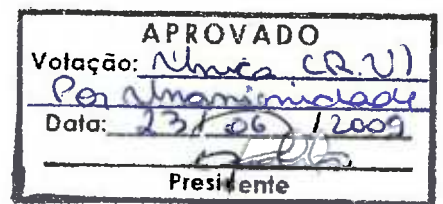 APROVADO
Votação: Única (R.U)
Por Unanimidade
Data: 23/06/2009
Presidente